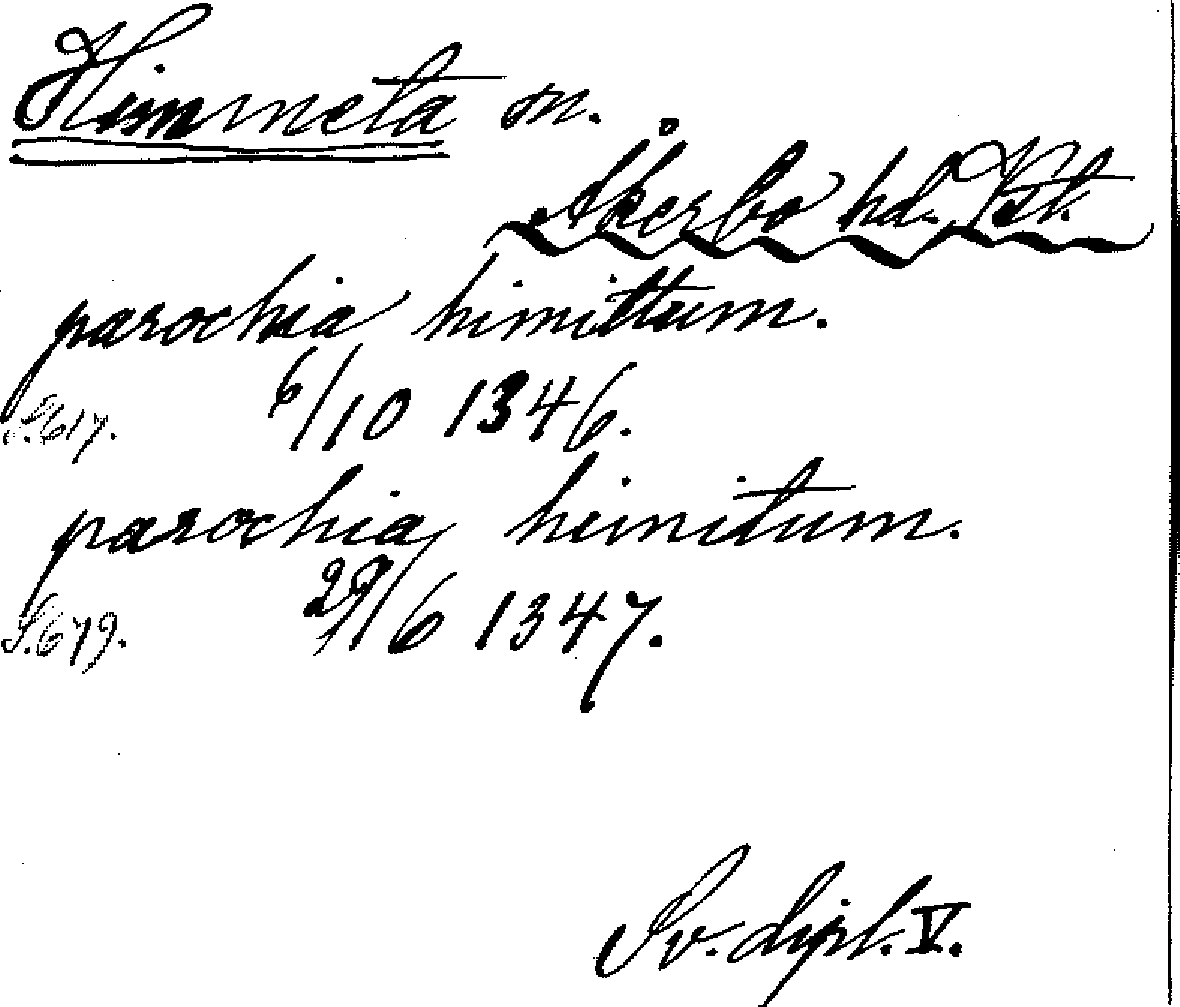 Himmeta sn.
Åkerbo hd. Vstl.
parochia himittum.
S. 617. 6/10 1346.
parochia himitum.
S. 679. 29/6 1347.
Sv. dipl. V.